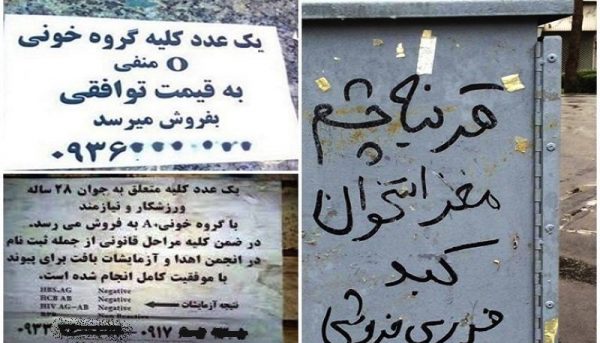 یک عدد کلیه گروه خونی
O منفی
به قیمت توافقی
بفروش میرسد
۰۹۳۶
یک عدد کلیه متعلق به جوان ۲۸ ساله
ورزشکار و نیازمند
با گروه خونی A+ به فروش می رسد.
در ضمن کلیه مراحل قانونی از جمله ثبت نام
در انجمن اهدا و آزمایشات بافت برای پیوند
با موفقیت کامل انجام شده است.
HBS.AG Negative
HCB AB Negative
HIV.AG-AB Negative نتیجه آزمایشات
۰۹۱۷ ۰۹۳۳
قرنیه چشم
مغز استخوان
کبد
فوری فروشی